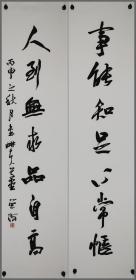 事能知足心常惬
人到无求品自高
丙申之秋月